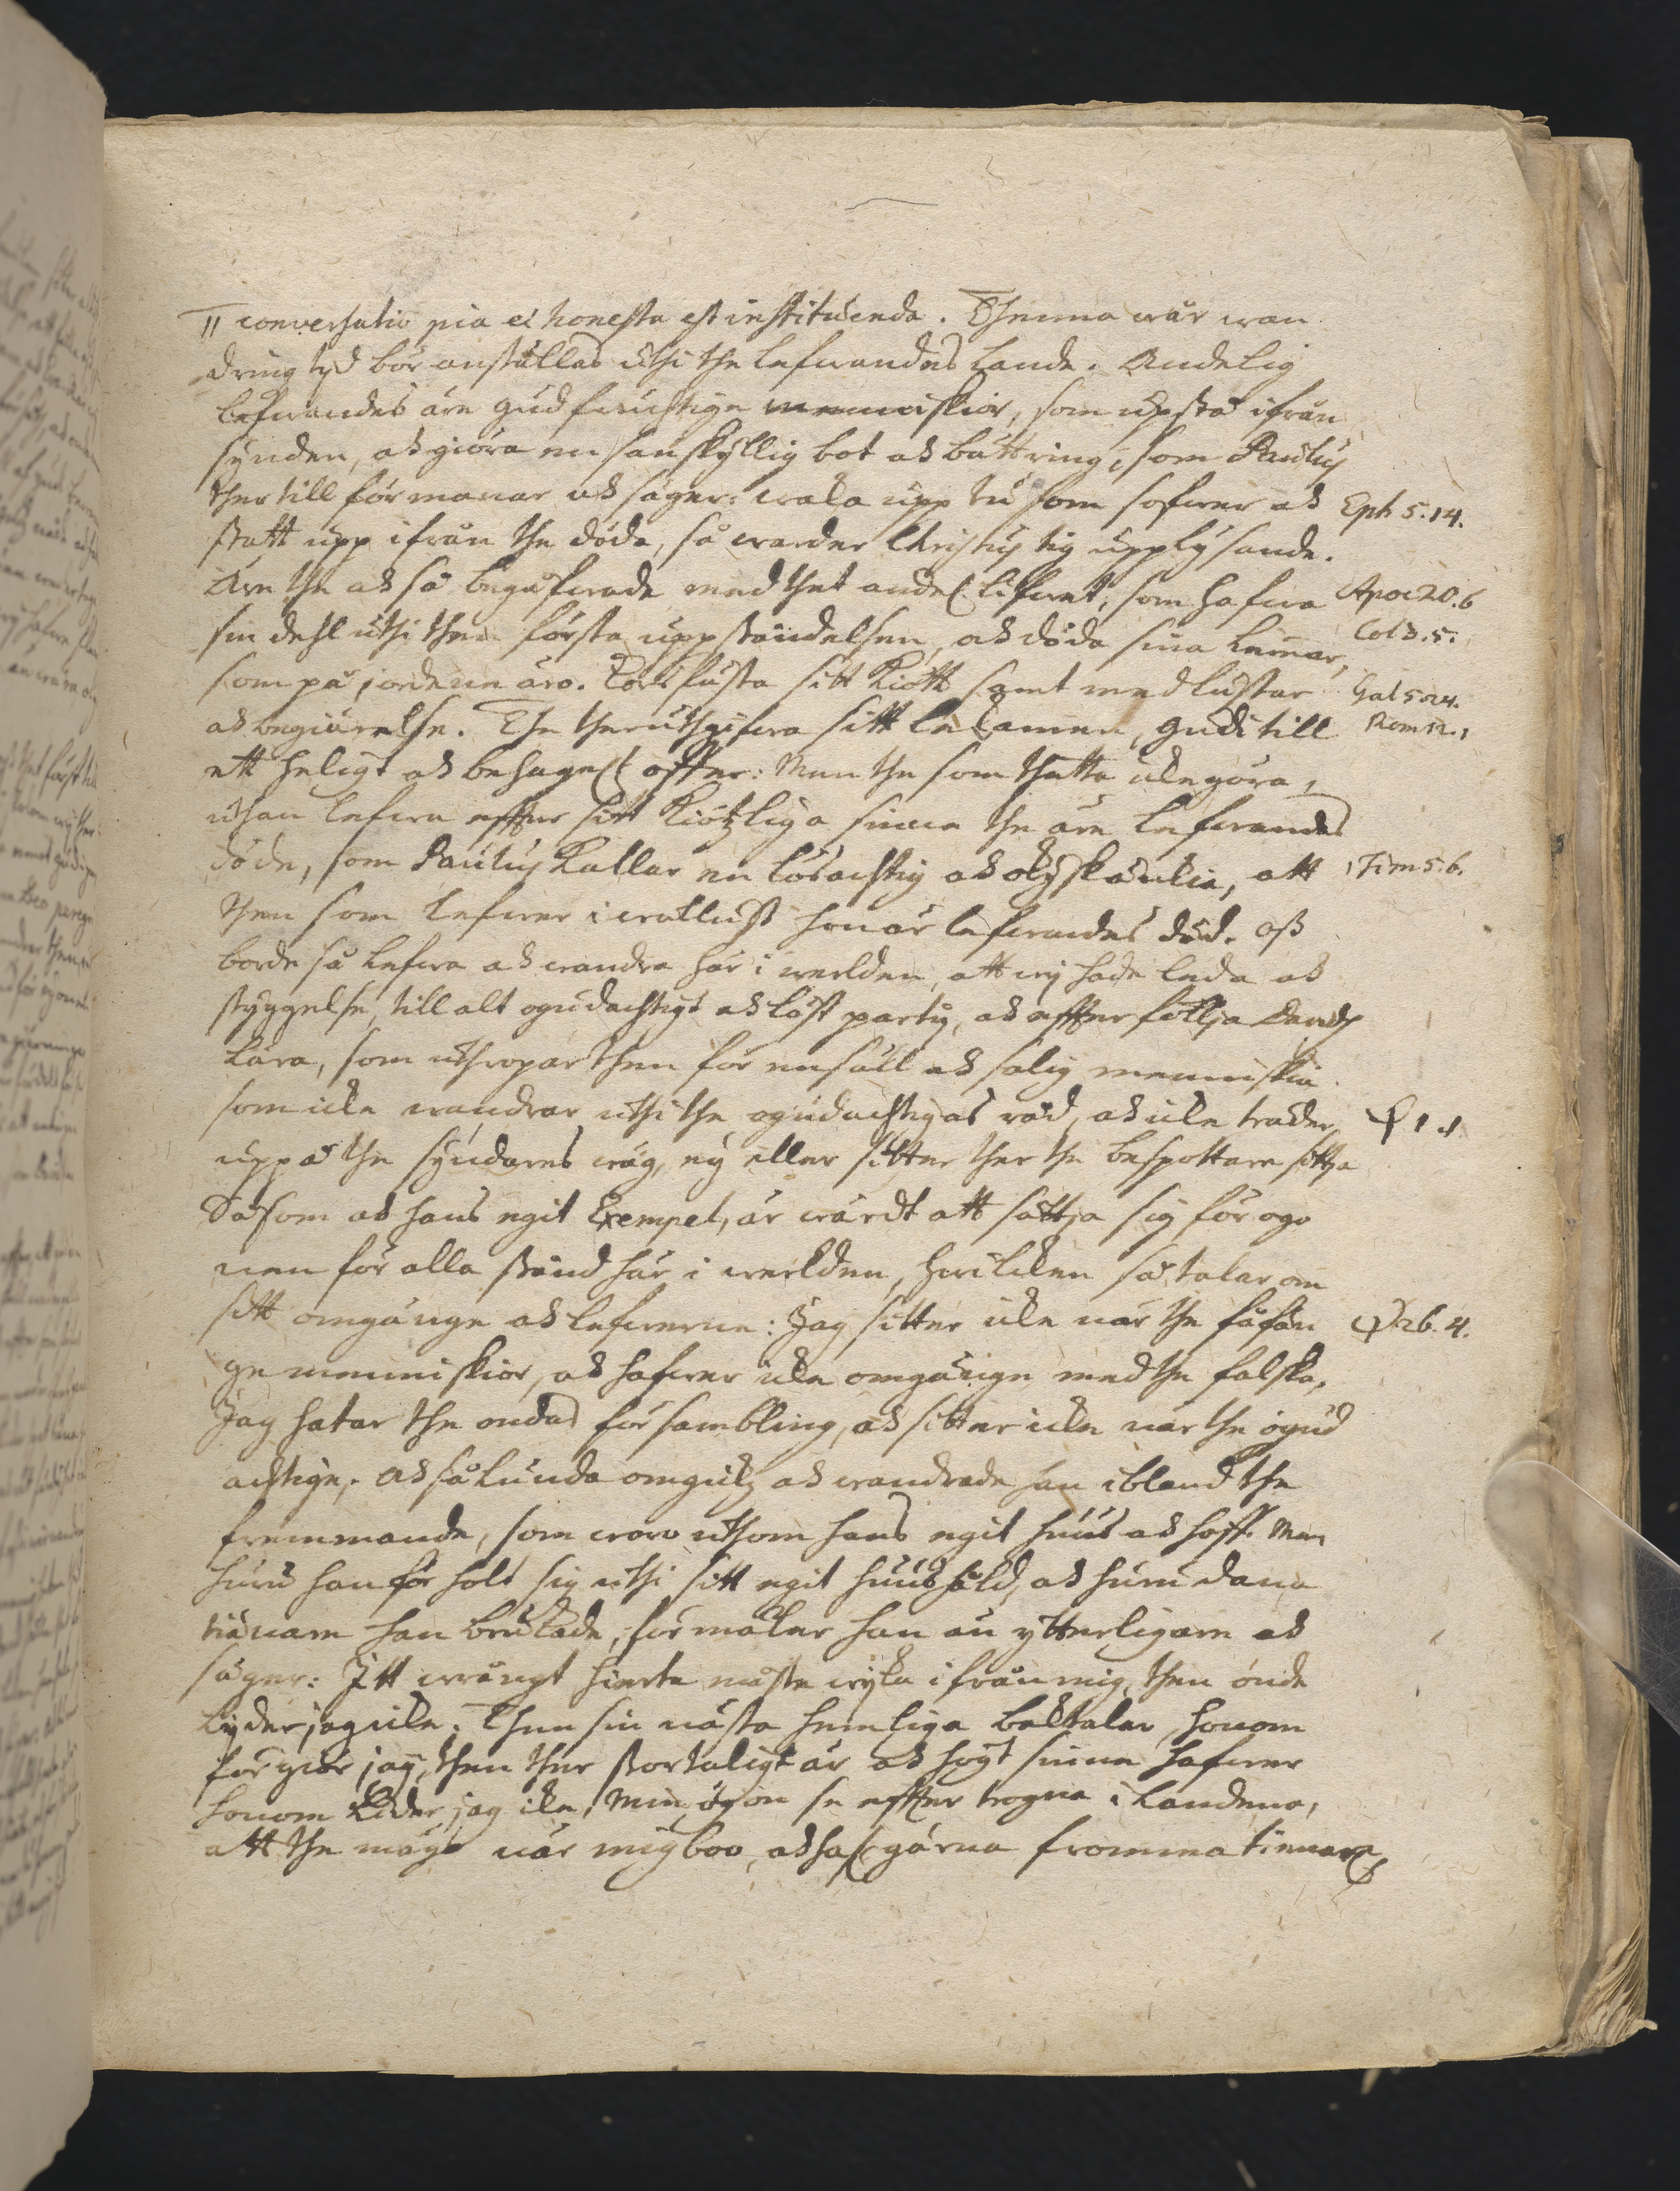 II conversatio pia et honesta est instituenda. Thenna wår wan
dring tyd bör anställas uthi the lefwandes lande. Andelig
lefwandes äre gudfrucktige menniskior, som upstå ifrån
synden, och giöra en sanskyllig bot och bättring, som Paulus
ther till förmanar och säger: waka upp tu som sofwer och Eph 5.14.
statt upp ifrån the döda, så warder Christus tig upplysande.
Äre the och så begåfwade med thet andel. lifwet, som hafwa Apoc 20.6
sin dehl uthi then första uppståndelsen, och döda sina lemar, Col 3.5.
som på jordenne äro. Korsfästa sitt Kiött samt med lustar Gal 5.24.
och begiärelse. The ther uthgifwa sitt lekamen, Gudi till Rom 12.1
ett heligt och behagel. offer: Men the som thetta icke göra,
uthan lefwa effter sitt Kiötzliga sinne the äre lefwandes
döde, som Paulus Kallar en lösachtig och okysk änckia, att 1 Tim 5.6.
then som lefwer i wällust hon är lefwandes död. Oss
borde så lefwa och wandra här i werlden, att wy hade leda och
styggelse till alt ogudachtigt och löst party, och effterföllja Davidz
Lära, som uthropar then för en säll och salig menniskia
som icke wandrar uthi the ogudachtigas råd, och icke träder Ps 1.1
uppå the syndares wäg, ey eller sitter ther the bespottare sittja
Såsom och hans egit Exempel, är wärdt att sättja sig för ogo
nen för alla stånd här i werlden, hwilcken så talar om
sitt omgänge och lefwerne: Jag sitter icke när the fåfän Ps. 26.4.
ge menniskior, och hafwer icke omgänge med the falska,
Jag hatar the ondas försambling, och sitter icke när the ogud
achtige. Och sålunda omgick och wandrade han ibland the
fremmande, som woro uthom hans egit huus och hoff. Men
huru han förholt sig uthi sitt egit huushåld, och hurudana
tiänare han brukade, förmäler han än ytterligare och
säger: Itt wrångt hierta måste wyka ifrån mig, then onde
lyder jag icke. Then sin nästa hemliga baktalar, honom
förgiör jag, then ther stortaligt är och högt sinne hafwer
honom Lider jag icke, Min ögon se effter trogna i Landena,
att the måge när mig boo, och haf. gärna fromma tienare,